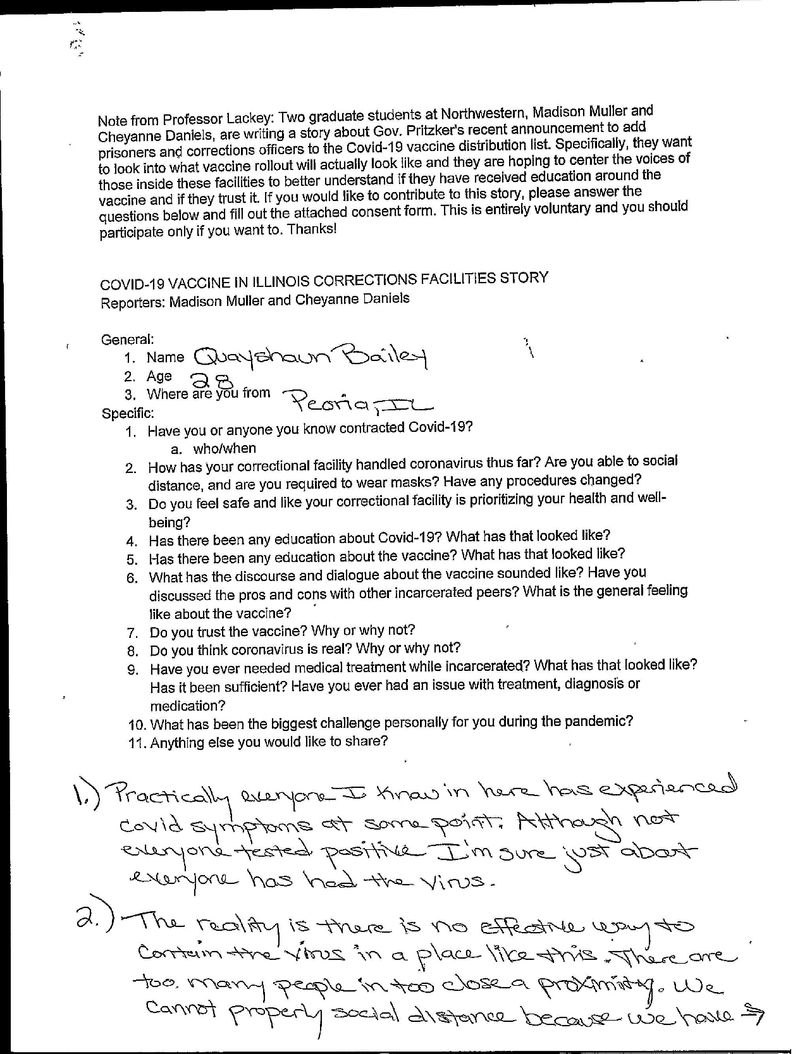 Note from Professor Lackey: Two graduate students at Northwestern, Madison Muller and
Cheyanne Daniels, are writing a story about Gov. Pritzker's recent announcement to add
prisoners and corrections officers to the Covid-19 vaccine distribution list. Specifically, they want
to look into what vaccine rollout will actually look like and they are hoping to center the voices of
those inside these facilities to better understand if they have received education around the
vaccine and if they trust it. If you would like to contribute to this story, please answer the
questions below and fill out the attached consent form. This is entirely voluntary and you should
participate only if you want to. Thanks!
COVID-19 VACCINE IN ILLINOIS CORRECTIONS FACILITIES STORY
Reporters: Madison Muller and Cheyanne Daniels
General:
1. Name Quayshaun Bailey
2. Age 28
3. Where are you from Peoria, IL
Specific:
1. Have you or anyone you know contracted Covid-19?
a. who/when
2. How has your correctional facility handled coronavirus thus far? Are you able to social
distance, and are you required to wear masks? Have any procedures changed?
3. Do you feel safe and like your correctional facility is prioritizing your health and well-
being?
4. Has there been any education about Covid-19? What has that looked like?
5. Has there been any education about the vaccine? What has that looked like?
6. What has the discourse and dialogue about the vaccine sounded like? Have you
discussed the pros and cons with other incarcerated peers? What is the general feeling
like about the vaccine?
7. Do you trust the vaccine? Why or why not?
8. Do you think coronavirus is real? Why or why not?
9. Have you ever needed medical treatment while incarcerated? What has that looked like?
Has it been sufficient? Have you ever had an issue with treatment, diagnosis or
medication?
10. What has been the biggest challenge personally for you during the pandemic?
11. Anything else you would like to share?
1.) Practically everyone I know in here has experienced
covid symptoms at some point. Although not
everyone tested positive I'm sure just about
everyone has had the virus.
2.) The reality is there is no effective way to
contain the virus in a place like this. There are
too many people in too close a proximity. We
cannot properly social distance because we have →